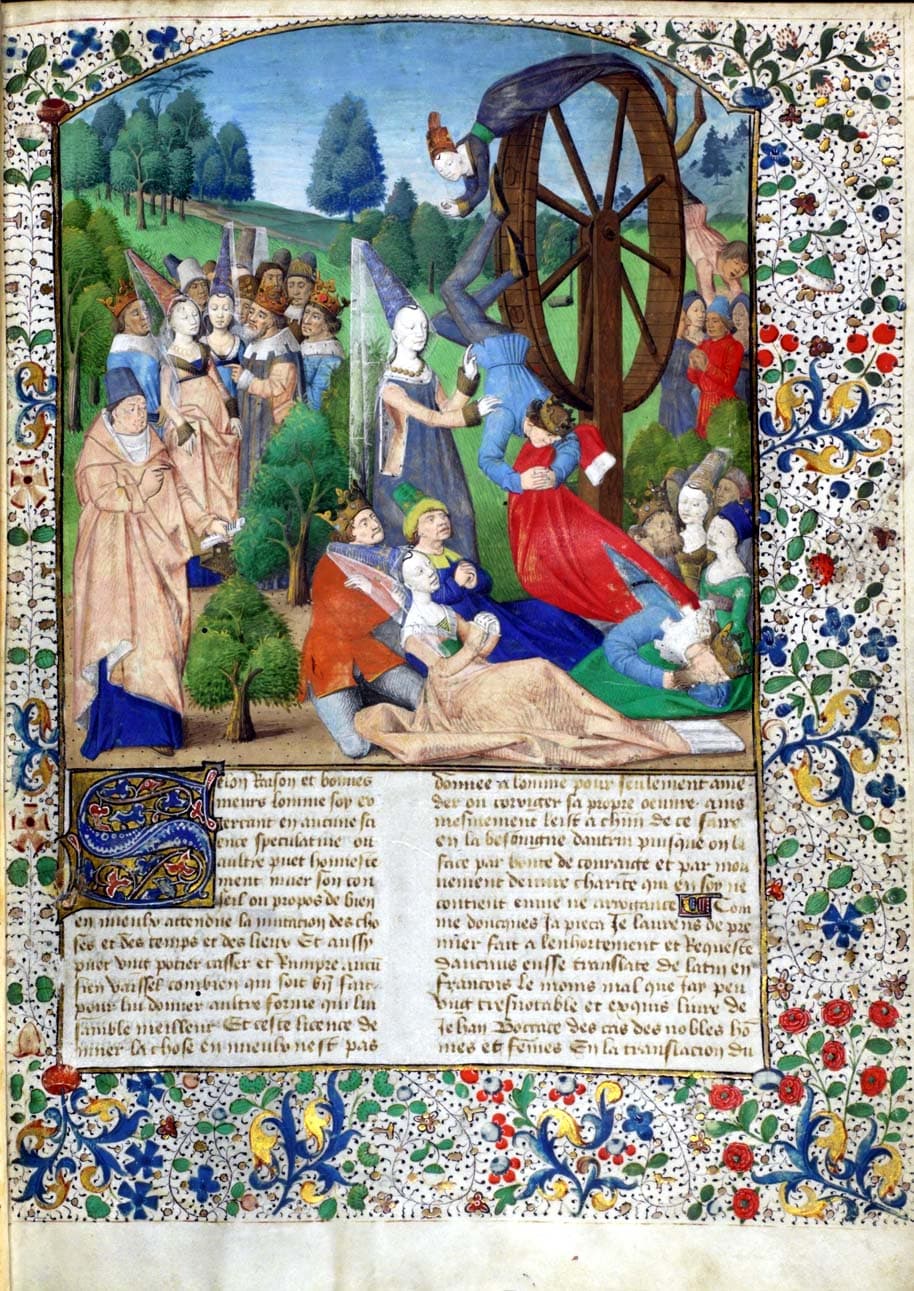 Selon Raison et bonnes
meurs lomme soy ex
ercant en aucune sci
ence speculative ou
aultre puet honneste
ment muer son con
seil ou propos de bien
en mieulx actendue la mutacion des cho
ses et des temps et des lieux Et aussy
puet ung potier casser et Rumpre aucu
sien vaissel combien qui soit bn fait
pour lui donner aultre forme qui lui
samble meilleur Et ceste licence de
muer la chose en mieulx nest pas
donnee a lomme pour seulement amē
der ou corrigier sa propre oeuvre ains
mesmement leist a chūn de ce faire
en la besoingne daultrui puisque on la
face par bonte de couraige et par mou
vement de pure charite qui en soy ne
contient envie ne arrogance Com
me doncques Ja pieca Je laurens de pre
mier fait a lenhortement et Requeste
daucuns eusse translate de latin en
Francois le moins mal que Jay peu
ung tresnotable et exquis livre de
Jehan Boccace des cas des nobles hō
mes et fēmes En la translacion du